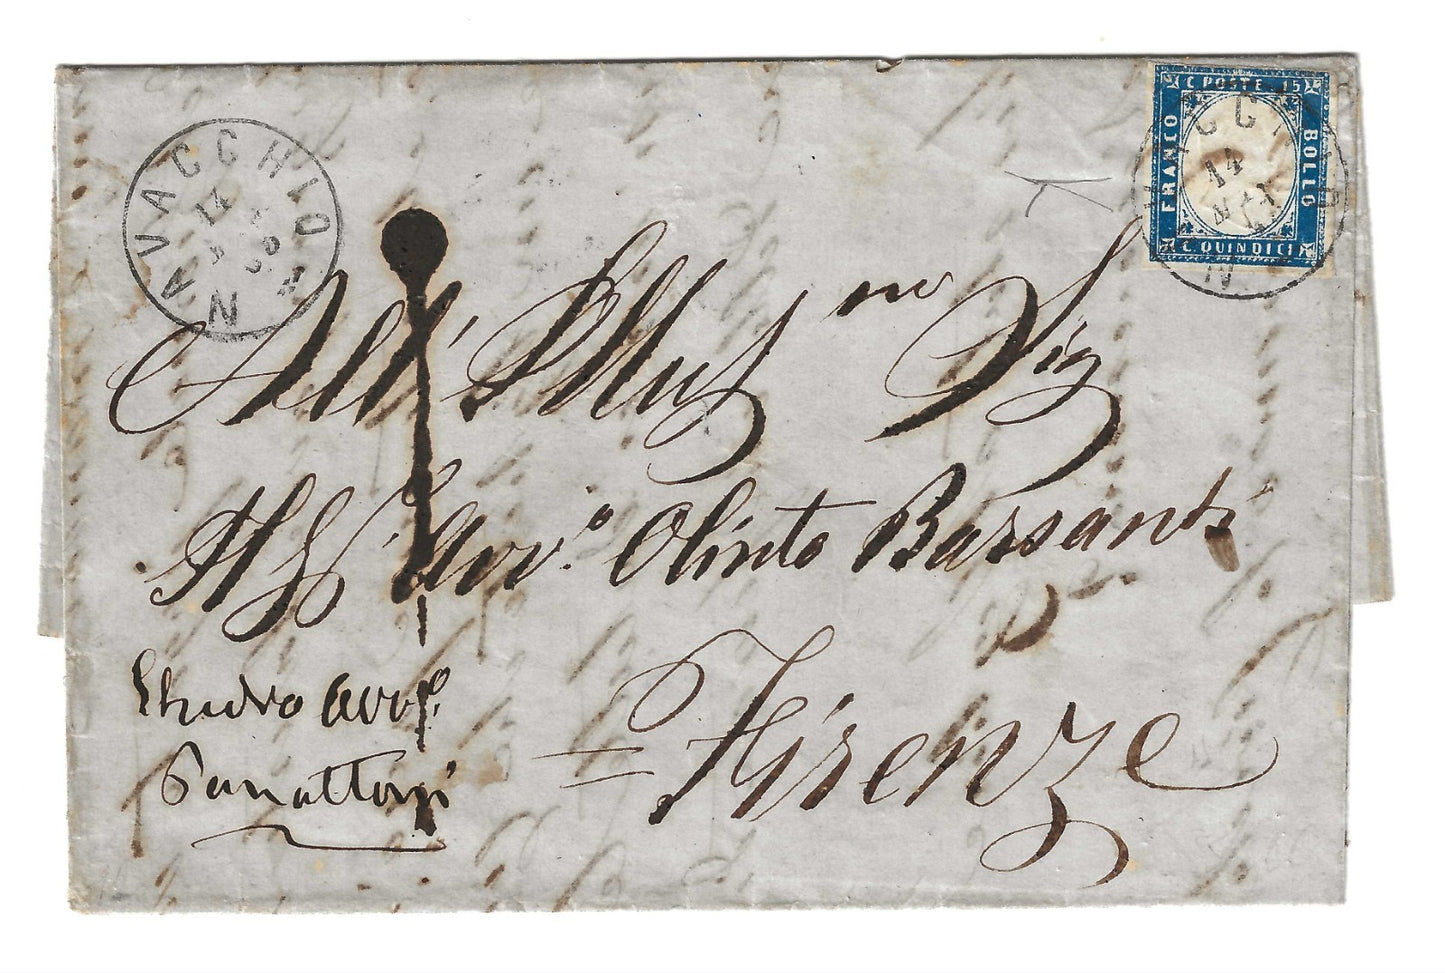 NAVACCHIO
14
C. POSTE 15
FRANCO
BOLLO
C. QUINDICI
14
All' Illus^mo Sig
Avv.^o Olinto Bassanti
= Firenze
Studio avv^o
Panattoni